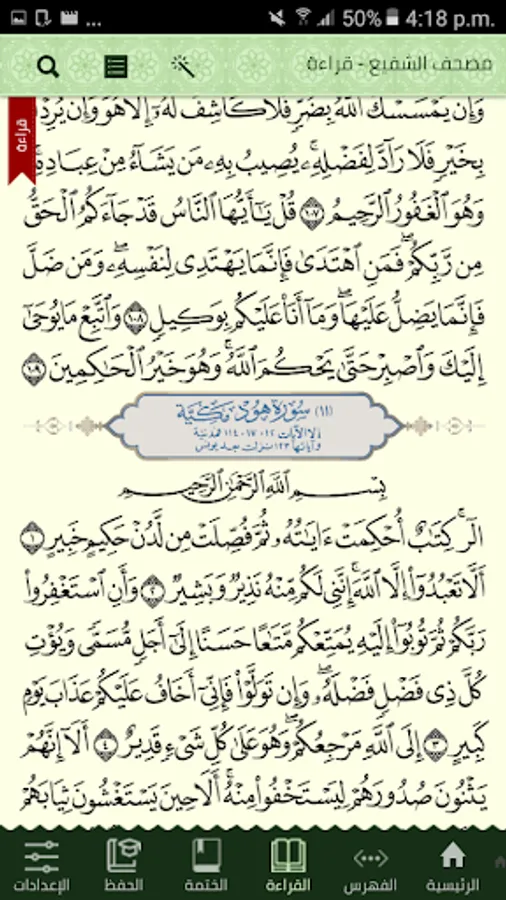 50% 4:18 p.m.
مصحف الشفيع - قراءة
قراءة
وَإِن يَمْسَسْكَ ٱللَّهُ بِضُرٍّ فَلَا كَاشِفَ لَهُۥٓ إِلَّا هُوَ وَإِن يُرِدْكَ
بِخَيْرٍ فَلَا رَآدَّ لِفَضْلِهِۦ يُصِيبُ بِهِۦ مَن يَشَآءُ مِنْ عِبَادِهِۦ
وَهُوَ ٱلْغَفُورُ ٱلرَّحِيمُ ١٠٧ قُلْ يَـٰٓأَيُّهَا ٱلنَّاسُ قَدْ جَآءَكُمُ ٱلْحَقُّ
مِن رَّبِّكُمْ ۖ فَمَنِ ٱهْتَدَىٰ فَإِنَّمَا يَهْتَدِى لِنَفْسِهِۦ ۖ وَمَن ضَلَّ
فَإِنَّمَا يَضِلُّ عَلَيْهَا ۖ وَمَآ أَنَا۠ عَلَيْكُم بِوَكِيلٍ ١٠٨ وَٱتَّبِعْ مَا يُوحَىٰٓ
إِلَيْكَ وَٱصْبِرْ حَتَّىٰ يَحْكُمَ ٱللَّهُ ۚ وَهُوَ خَيْرُ ٱلْحَـٰكِمِينَ ١٠٩
(١١) سورة هود مكية
إلا الآيات ١٢، ١٧، ١١٤ فمدنية
وآياتها ١٢٣ نزلت بعد يونس
بِسْمِ ٱللَّهِ ٱلرَّحْمَـٰنِ ٱلرَّحِيمِ
الٓر ۚ كِتَـٰبٌ أُحْكِمَتْ ءَايَـٰتُهُۥ ثُمَّ فُصِّلَتْ مِن لَّدُنْ حَكِيمٍ خَبِيرٍ ١
أَلَّا تَعْبُدُوٓا۟ إِلَّا ٱللَّهَ ۚ إِنَّنِى لَكُم مِّنْهُ نَذِيرٌ وَبَشِيرٌ ٢ وَأَنِ ٱسْتَغْفِرُوا۟
رَبَّكُمْ ثُمَّ تُوبُوٓا۟ إِلَيْهِ يُمَتِّعْكُم مَّتَـٰعًا حَسَنًا إِلَىٰٓ أَجَلٍ مُّسَمًّى وَيُؤْتِ
كُلَّ ذِى فَضْلٍ فَضْلَهُۥ ۖ وَإِن تَوَلَّوْا۟ فَإِنِّىٓ أَخَافُ عَلَيْكُمْ عَذَابَ يَوْمٍ
كَبِيرٍ ٣ إِلَى ٱللَّهِ مَرْجِعُكُمْ ۖ وَهُوَ عَلَىٰ كُلِّ شَىْءٍ قَدِيرٌ ٤ أَلَآ إِنَّهُمْ
يَثْنُونَ صُدُورَهُمْ لِيَسْتَخْفُوا۟ مِنْهُ ۚ أَلَا حِينَ يَسْتَغْشُونَ ثِيَابَهُمْ
الرئيسية الفهرس القراءة الختمة الحفظ الإعدادات